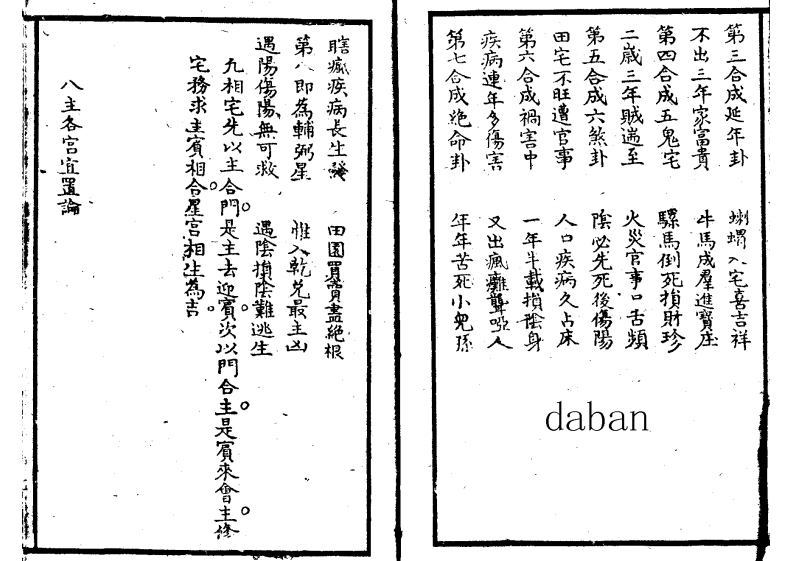 第三合成延年卦　蝌蝟入宅喜吉祥
不出三年家富貴　牛馬成羣進寶庄
第四合成五鬼宅　騾馬倒死損財珍
二歲三年賊遄至　火災官事口舌頻
第五合成六煞卦　陰必先死後傷陽
田宅不旺遭官事　人口疾病久占床
第六合成禍害中　一年半載損陰身
疾病連年多傷害　又出瘋癱聾啞人
第七合成絕命卦　年年苦死小兒孫
瞎瘋疾病長生　田園買賣盡絕根
第八即為輔弼星　惟入乾兌最主凶
遇陽傷陽無可救　遇陰損陰難逃生
九相宅先以主合門是主去迎賓次以門合主是賓來會主修
宅務求主賓相合星宮相生為吉
八主各宮宜置論
daban